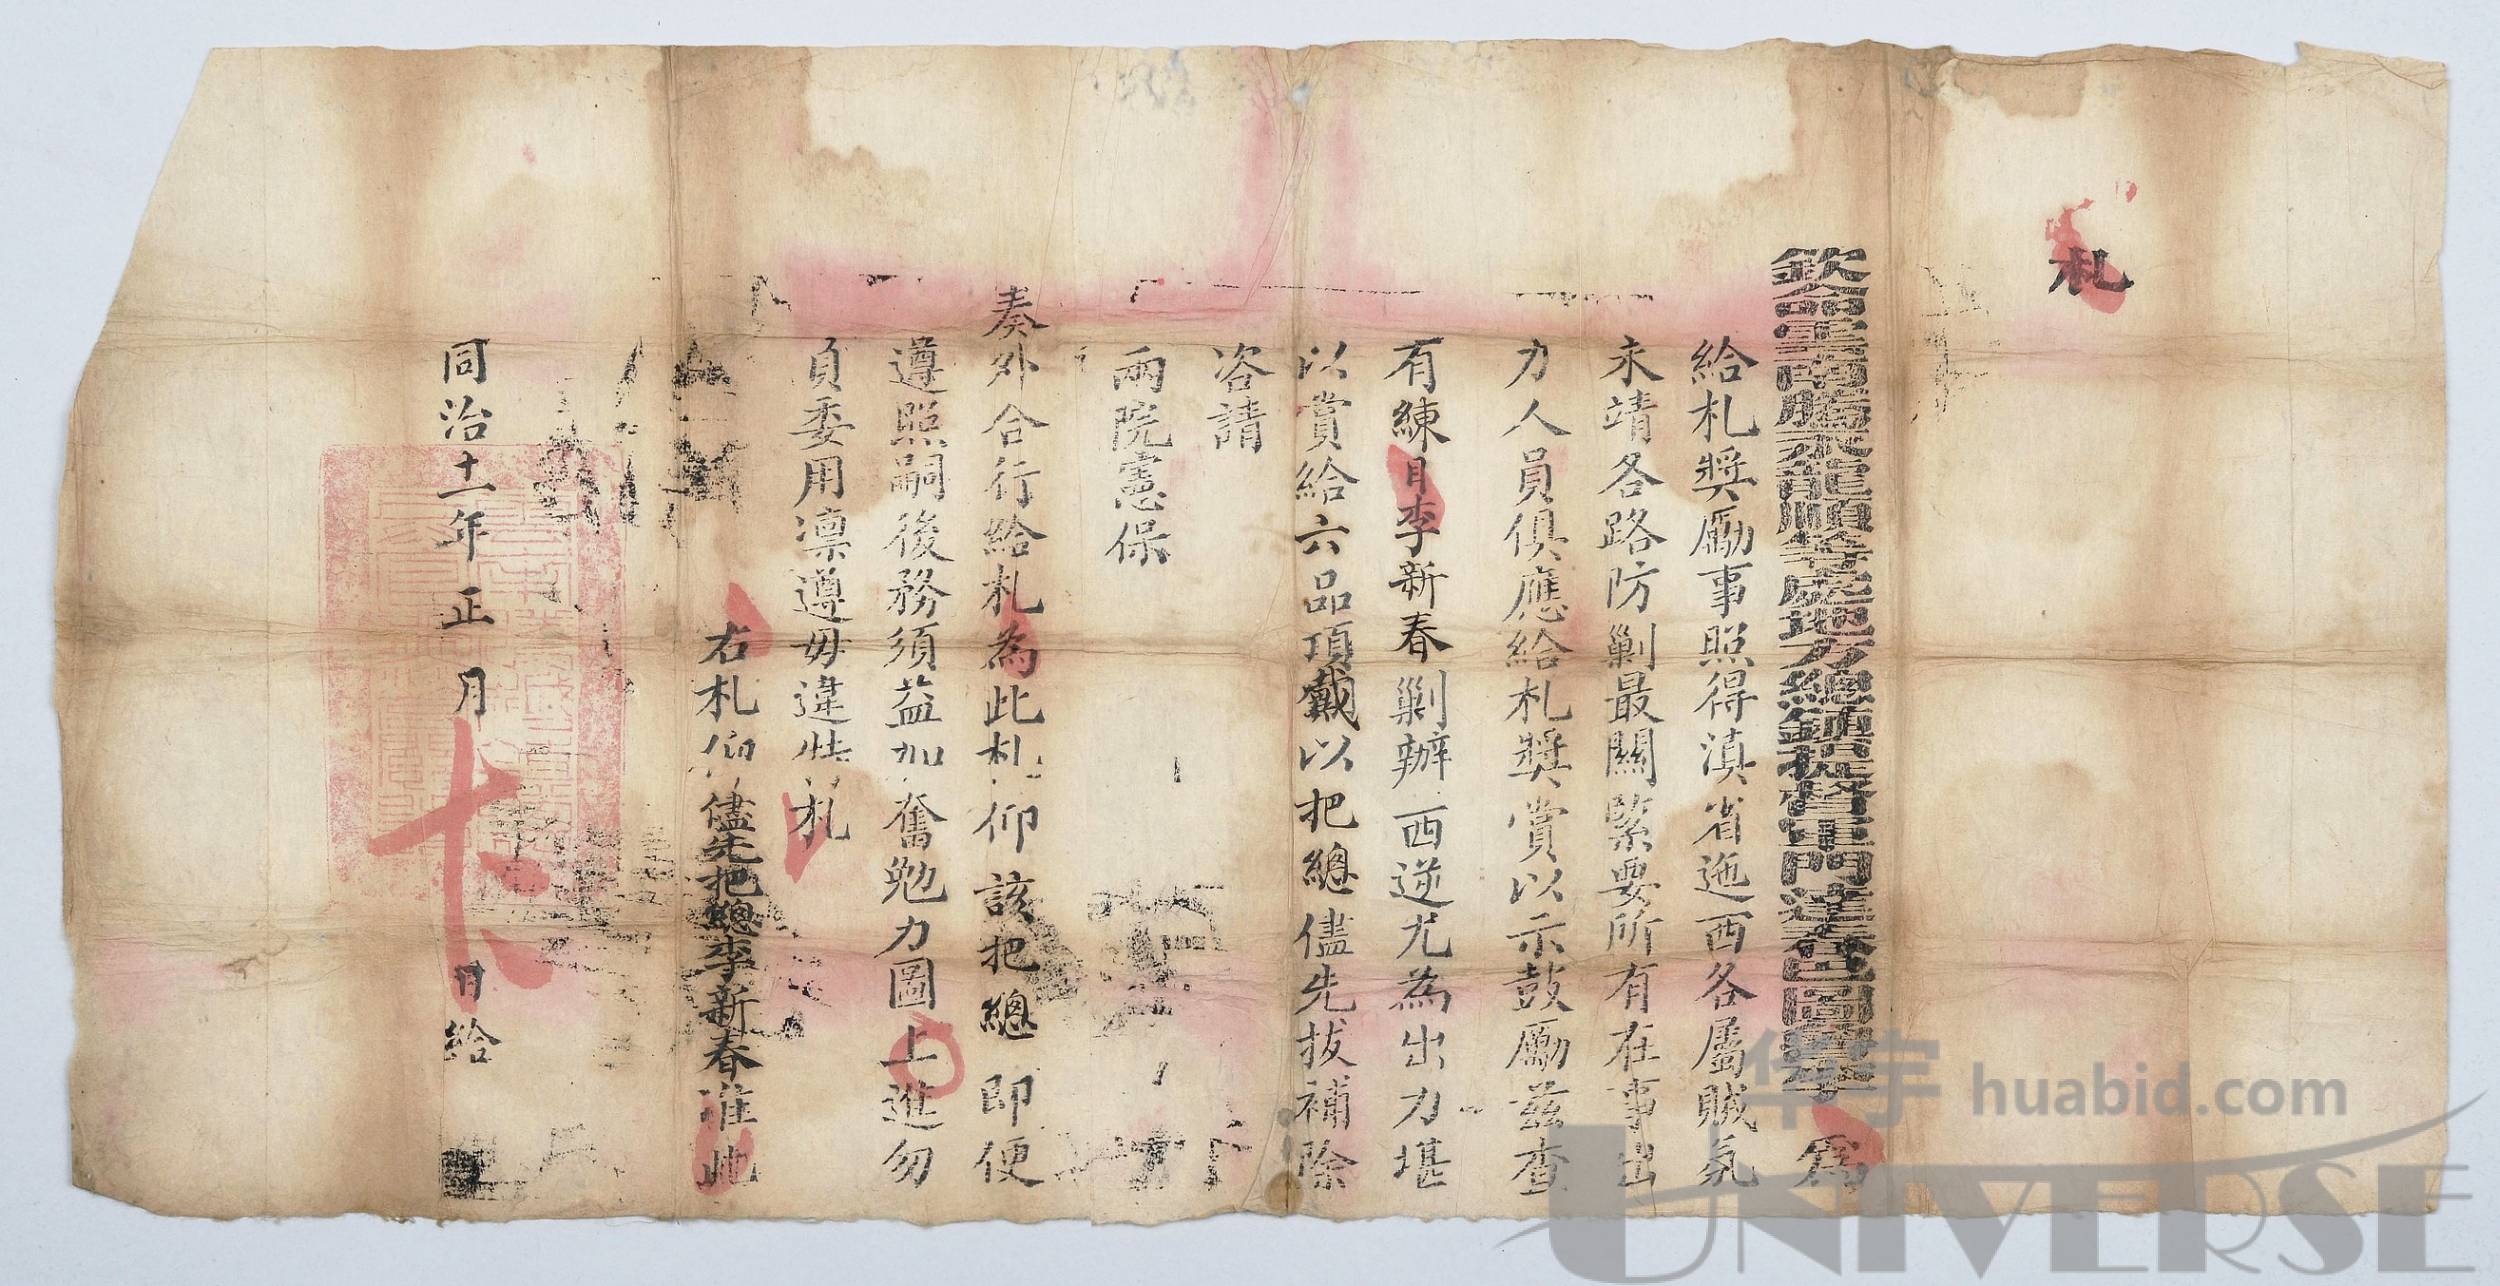 札
欽命雲南騰永龍順等處地方總鎮提督軍門達春巴圖魯李 為
給札獎勵事照得滇省迤西各屬賊氛
未靖各路防剿最關緊要所有在事出
力人員俱應給札獎賞以示鼓勵茲查
有練目李新春剿辦西逆尤為出力堪
以賞給六品頂戴以把總儘先拔補除
咨請
兩院憲保
奏外合行給札為此札仰該把總即便
遵照嗣後務須益加奮勉力圖上進勿
負委用凜遵毋違此札
右札仰儘先把總李新春准此
同治十一年正月 日給
华宇 huabid.com
UNIVERSE